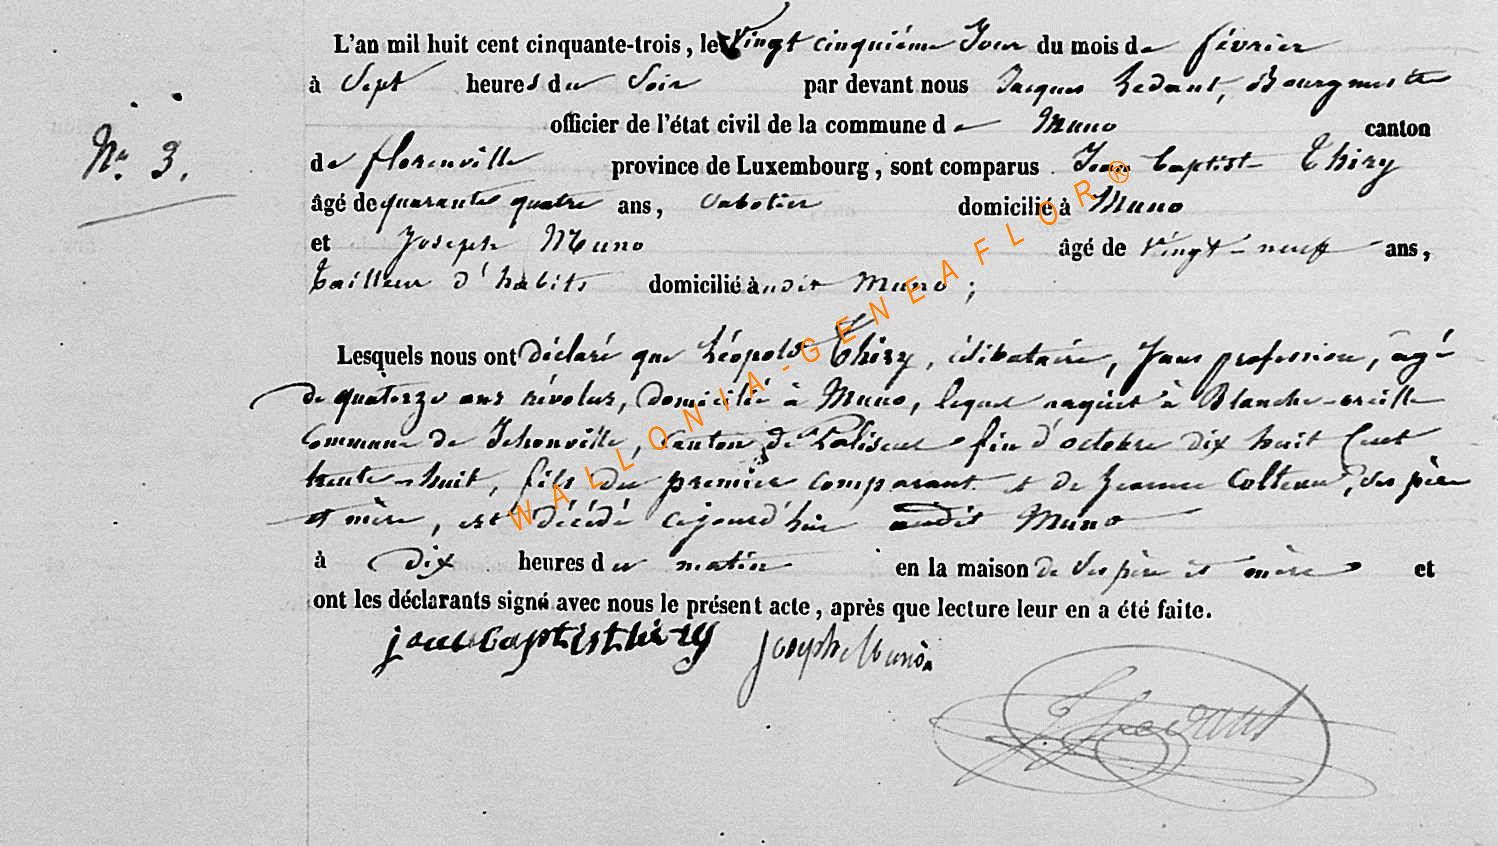 L'an mil huit cent cinquante-trois, le Vingt cinquième Jour du mois de février
à Sept heures du Soir par devant nous Jacques Ledant, Bourgmestre
officier de l'état civil de la commune de Muno canton
N° 3.
de florenville province de Luxembourg, sont comparus Jean Baptiste Thiry
âgé de quarante quatre ans, Sabotier domicilié à Muno
et Joseph Muno âgé de vingt-neuf ans,
tailleur d'habits domicilié àudit Muno;
Lesquels nous ont déclaré que Léopold Thiry, célibataire, Sans profession, âgé
de quatorze ans révolus, domicilié à Muno, lequel naquit à Blanche-oreille
commune de Jehonville, canton de Paliseul fin d'octobre dix huit Cent
trente-huit, fils du premier comparant et de Jeanne Colleaux, Ses père
et mère, est décédé cejourd'hui audit Muno
à dix heures du matin en la maison de Ses père et mère et
ont les déclarants signé avec nous le présent acte, après que lecture leur en a été faite.
jean Baptist thiry joseph Muno
J Ledant
WALLONIA-GENEAFLOR®